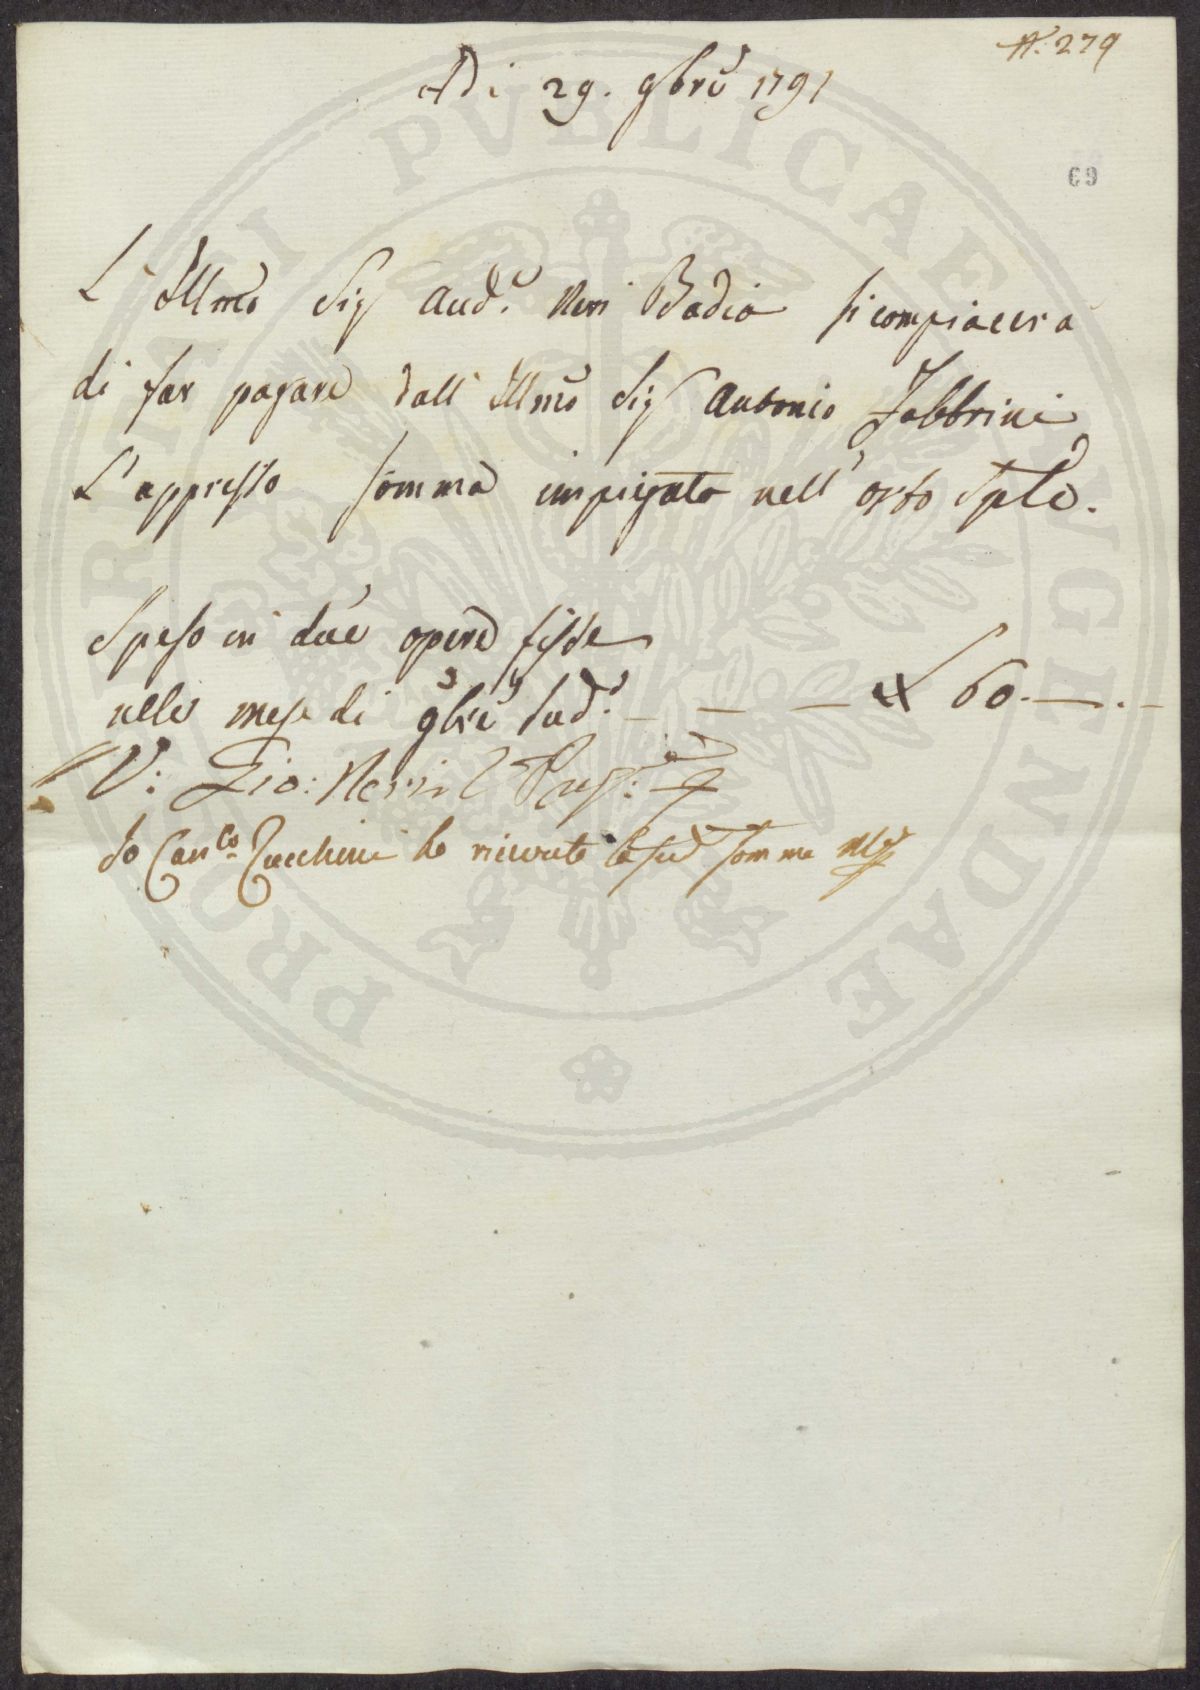 N.° 279
A Di 29. 9bre 1791
69
L'Illmo Sig Aud.e Neri Badia si compiacerà
di far pagare dall' Illmo Sig Antonio Fabbrini
L'appresso somma impiegata nell' orto Sple.
Speso in due opere fisse
nello mese di 9bre sud.o - - - £ 60.—.-
V: Gio: Neri
Io Can.co Zucchini ho ricevuto la sud.a somma
PROSPERITATI PUBLICAE AUGENDAE